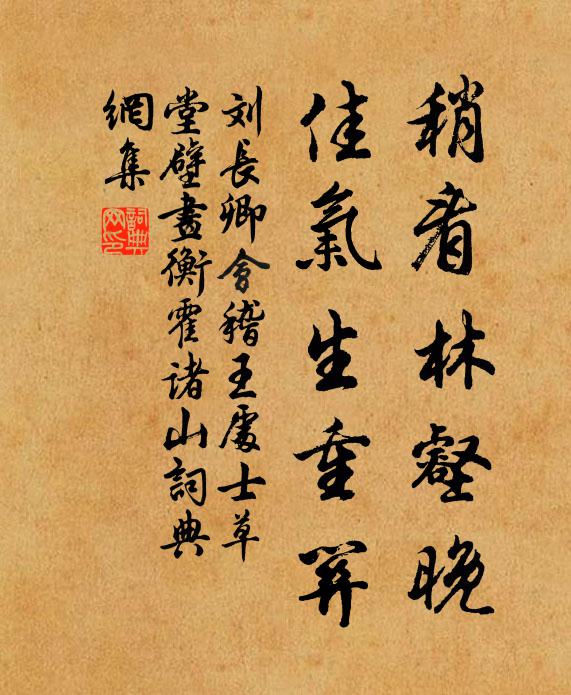 稍看林壑晚
佳氣生重關
刘長卿會稽王處士草
堂壁畫衡霍諸山詞典
網集
詞典
网印